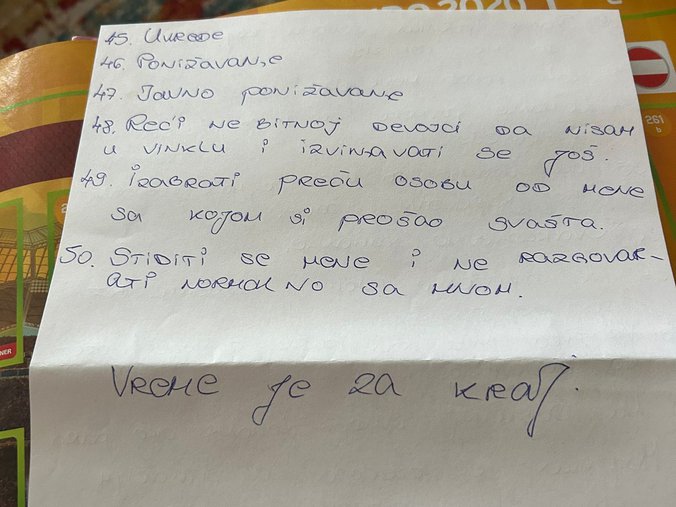 RO 2020
45. UVREDE
46. PONIŽAVANJE
47. JAVNO PONIŽAVANJE
48. REĆI NE BITNOJ DEVOJCI DA NISAM
U VINKLU I IZVINJAVATI SE JOŠ.
49. IZABRATI PREČU OSOBU OD MENE
SA KOJOM SI PROŠAO SVAŠTA.
50. STIDITI SE MENE I NE RAZGOVAR-
ATI NORMALNO SA MNOM.
VREME JE ZA KRAJ.
261
b
NER